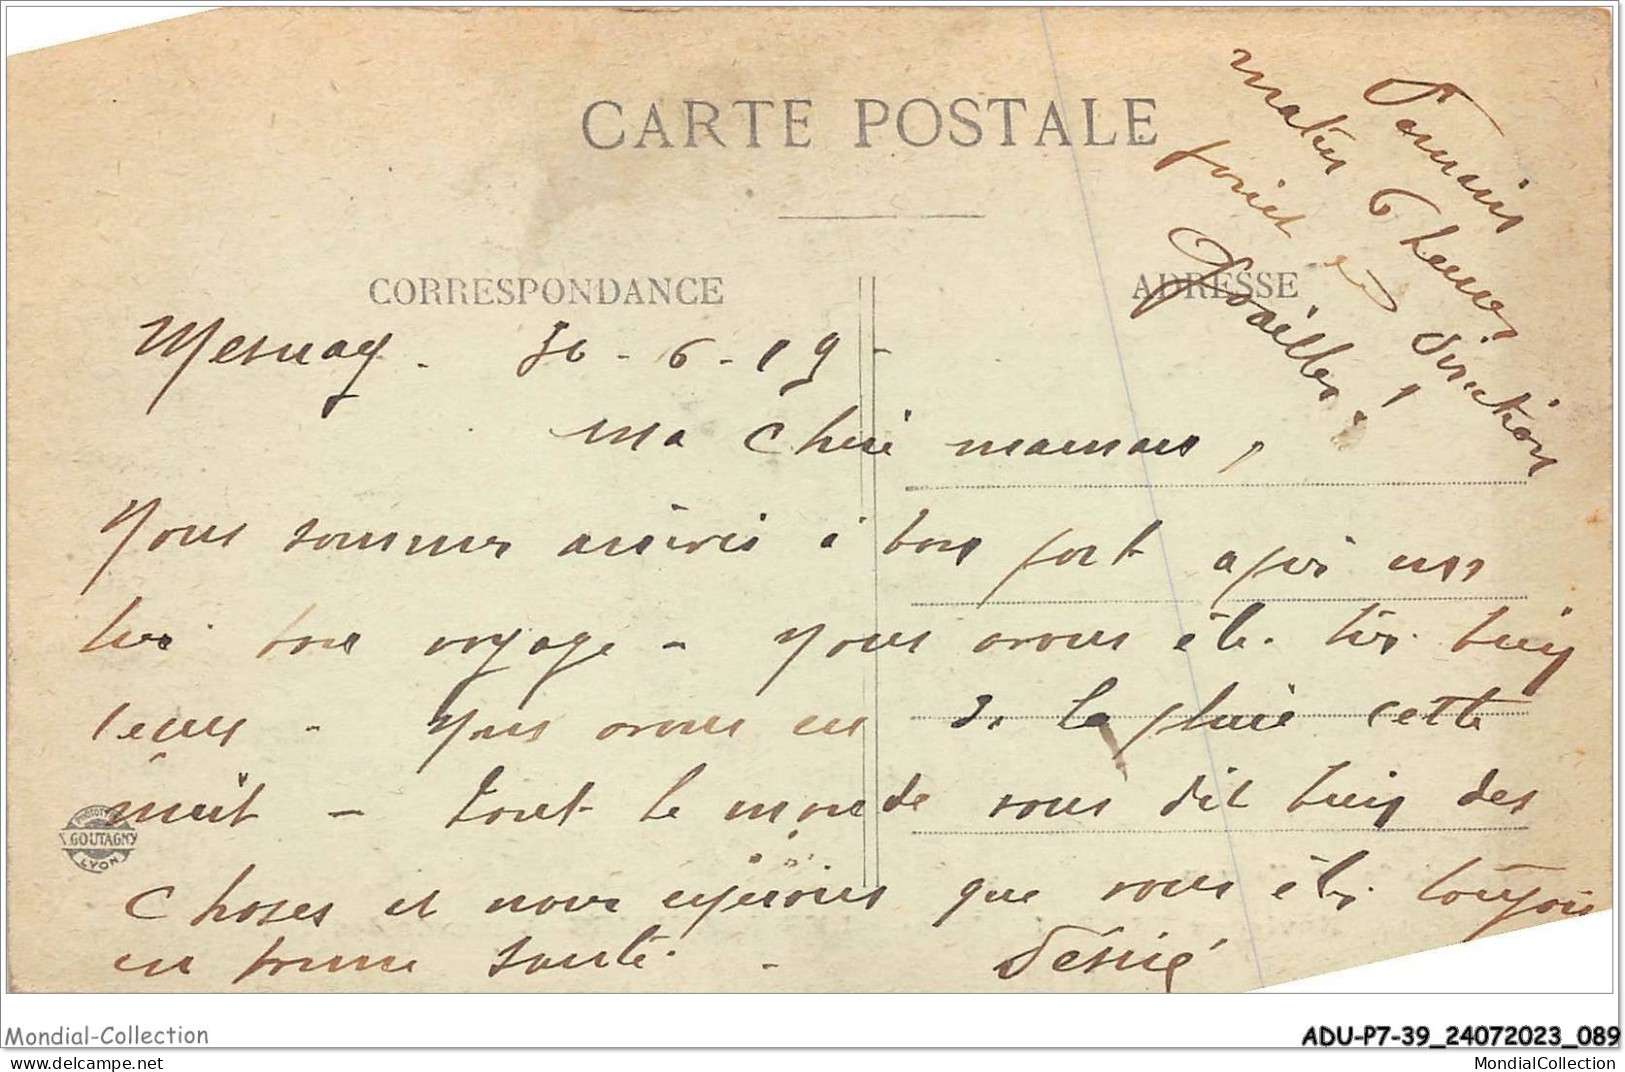 CARTE POSTALE
Demain
matin 6 heures direction
foret
CORRESPONDANCE
ADRESSE
Mesnay. 30-6-19-
ma chère maman,
Nous sommes arrivés à bon port après un
très bon voyage - Nous avons été très bien
reçus - Nous avons eu de la pluie cette
nuit - tout le monde vous dit bien des
choses et nous espérons que vous êtes toujours
en bonne santé. - Désiré
PHOTOTYPIE
GOUTAGNY
LYON
Mondial-Collection
ADU-P7-39_24072023_089
MondialCollection